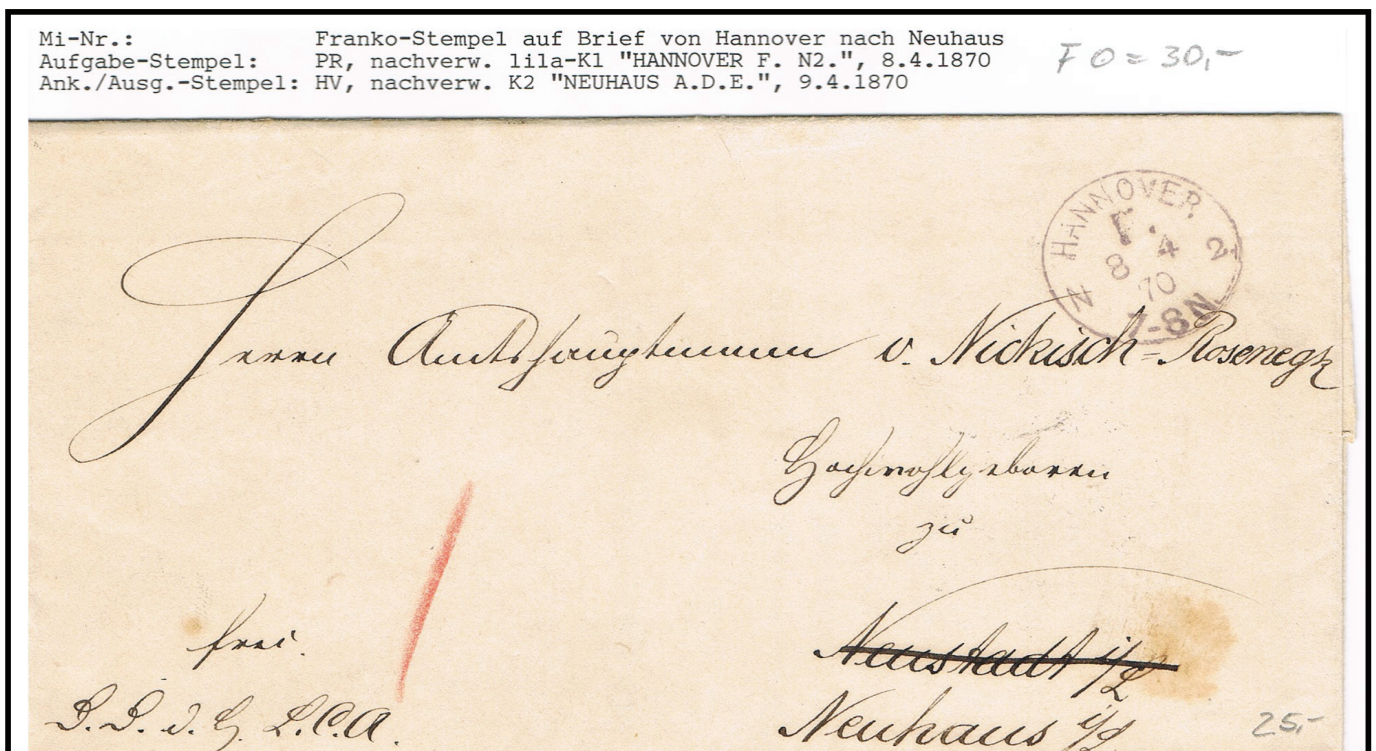 Mi-Nr.: Franko-Stempel auf Brief von Hannover nach Neuhaus
Aufgabe-Stempel: PR, nachverw. lila-K1 "HANNOVER F. N2.", 8.4.1870
Ank./Ausg.-Stempel: HV, nachverw. K2 "NEUHAUS A.D.E.", 9.4.1870
FO = 30,-
N. HANNOVER 2.
F.
8 4
70
7-8N
Herrn Amtshauptmann v. Nickisch-Rosenegk
Hochwohlgeboren
zu
frei.
Neustadt i/L
Neuhaus i/L
25,-